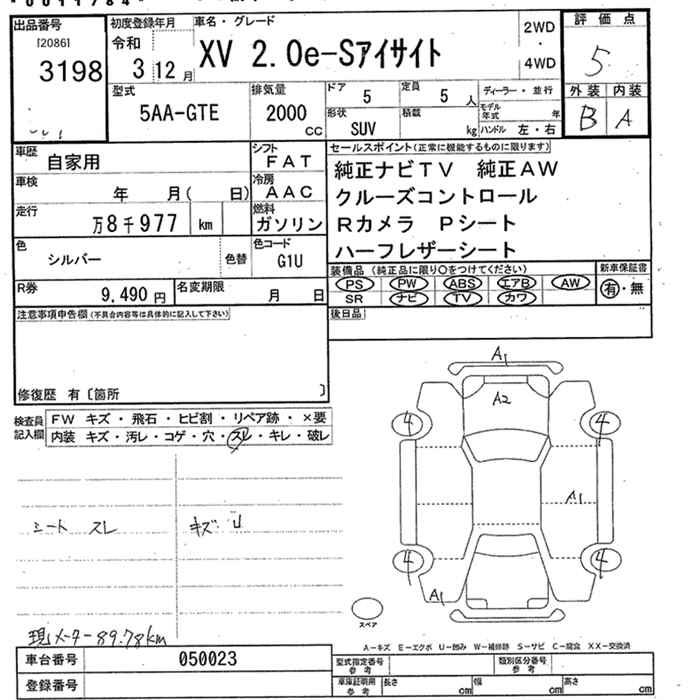 出品番号
[20861
3198
初度登録年月
令和
3 12月
車名・グレード
XV 2.0e-Sアイサイト
2WD
・
4WD
評価点
5
外装 内装
B A
型式
5AA-GTE
排気量
2000
CC
ドア
5
定員
5 人
形状
SUV
積載
kg
ディーラー・並行
モデル年式 年
ハンドル 左・右
車歴
自家用
シフト
FAT
車検
年 月( 日)
冷房
AAC
走行
万8千977 km
燃料
ガソリン
色
シルバー
色替
色コード
G1U
R券
9,490円
名変期限
月 日
セールスポイント(正常に機能するものに限ります)
純正ナビTV 純正AW
クルーズコントロール
Rカメラ Pシート
ハーフレザーシート
装備品(純正品に限り○をつけてください)
PS PW ABS エアB AW
SR ナビ TV カワ
新車保証書
有・無
後日品
注意事項申告欄(不具合内容等は具体的に記入して下さい)
修復歴 有〔箇所 〕
検査員
記入欄
FW キズ・飛石・ヒビ割・リペア跡・×要
内装 キズ・汚レ・コゲ・穴・スレ・キレ・破レ
シート スレ
キズ U
現メーター89.78km
A1
A2
4
4
A1
4
4
A1
スペア
A-キズ E-エクボ U-凹み W-補修跡 S-サビ C-腐食 XX-交換済
車台番号
050023
登録番号
型式指定番号
参考
類別区分番号
参考
車庫証明用
参考
長さ cm
幅 cm
高さ cm